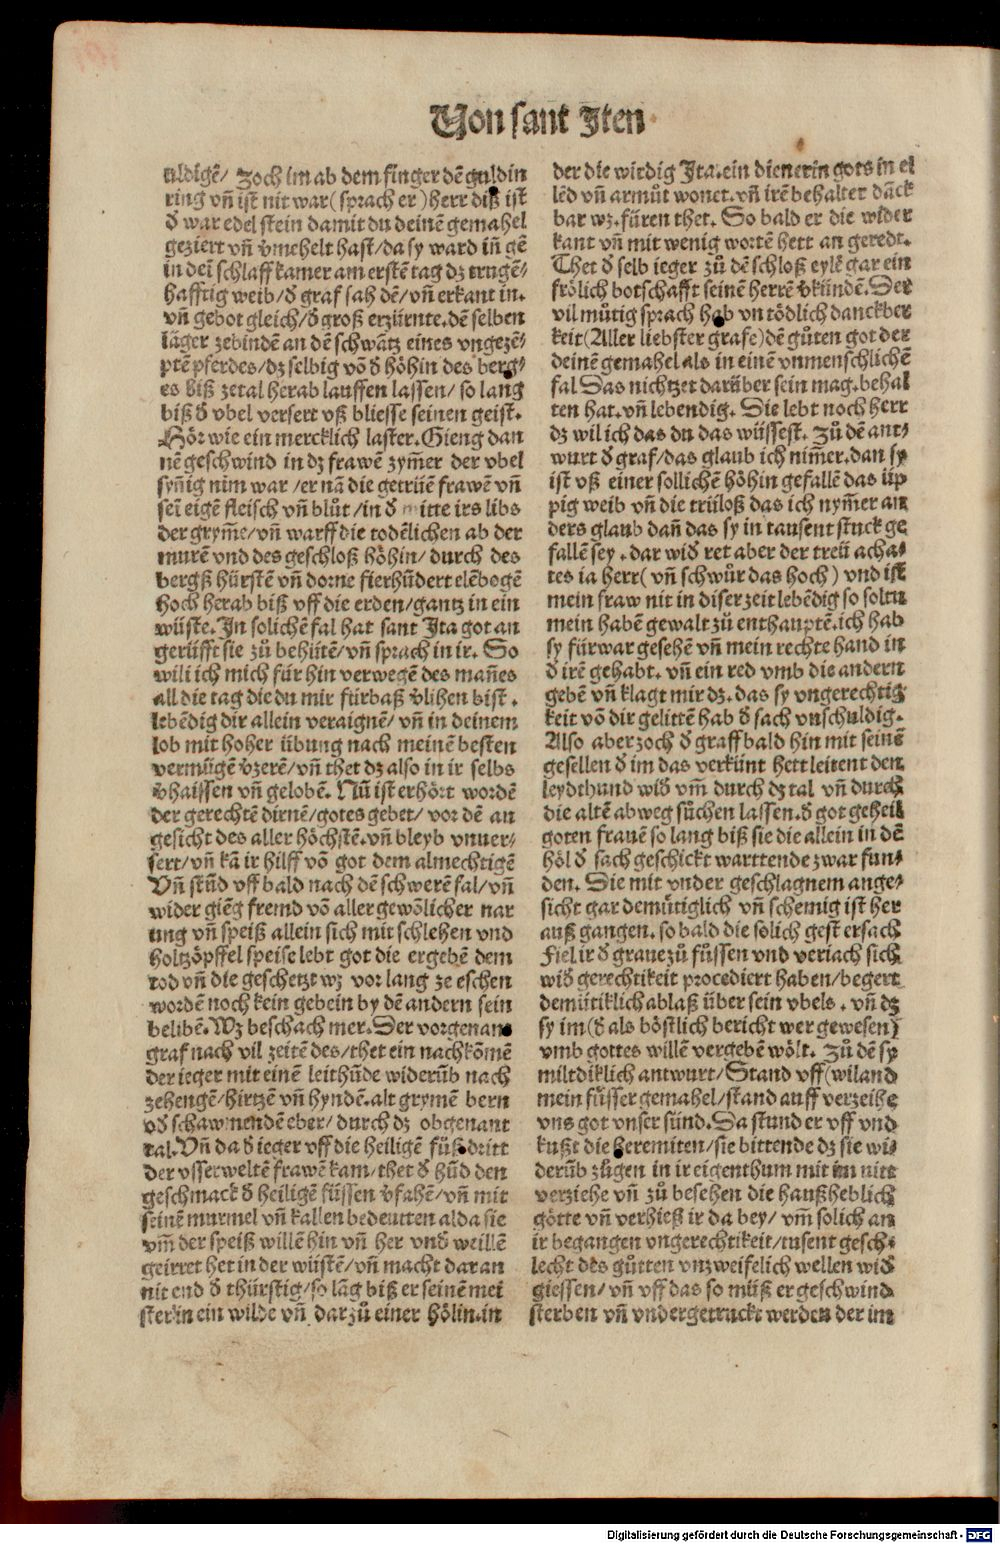 Von sant Iten
uldigē/ zoch im ab dem finger dē guldin
ring vn̄ ist nit war(sprach er)herr diß ist
d̕ war edel stein damit du deinē gemahel
geziert vn̄ v̕mehelt hast/da sy ward in̄ gē
in dei schlaff kamer am erstē tag dz trugē/
hafftig weib/d̕ graf sah dē/vn̄ erkant in.
vn̄ gebot gleich/d̕ groß erzürnte.dē selben
iäger zebindē an dē schwātz eines vngezē/
ptē pferdes/dz selbig vō d̕ höhin des berg/
es biß zetal herab lauffen lassen/ so lang
biß d̕ vbel versert vß bliesse seinen geist.
Hör wie ein mercklich laster.Gieng dan
nē geschwind in dz frawē zym̄er der vbel
syn̄ig nim war /er nā die getrüē frawē vn̄
sei eigē fleisch vn̄ blůt /in d̕ mitte irs libs
der grym̄e/vn̄ warff die todēlichen ab der
murē vnd des geschloß höhin/ durch des
bergß hürstē vn̄ dorne fierhūdert elēbogē
hoch herab biß vff die erden/gantz in ein
wüste.In solichē fal hat sant Ita got an
gerüfft sie zů behütē/vn̄ sprach in ir. So
wili ich mich für hin verwegē des man̄es
all die tag die du mir fürbaß v̕lihen bist .
lebēdig dir allein veraignē/vn̄ in deinem
lob mit hoher übung nach meinē besten
vermügē v̕zerē/vn̄ thet dz also in ir selbs
v̕haissen vn̄ gelobē. Nū ist erhört wordē
der gerechtē dirnē/gotes gebet/ vor dē an
gesicht des aller höchstē.vn̄ bleyb vnuer/
sert/vn̄ kā ir hilff vō got dem almechtigē
Vn̄ stūd vff bald nach dē schwerē fal/vn̄
wider giēg fremd vō aller gewōlicher nar
ung vn̄ speiß allein sich mit schlehen vnd
holtzöpffel speise lebt got die ergebē dem
tod vn̄ die geschetzt wz vor lang ze eschen
wordē noch kein gebein by dē andern sein
belibē.Wz beschach mer.Der vorgenant
graf nach vil zeitē des/thet ein nachkōmē
der ieger mit einē leithūde widerūb nach
zehengē/hirtzē vn̄ hyndē.alt grymē bern
vd̕ schawmendē eber/durch dz obgenant
tal.Vn̄ da d̕ ieger vff die heiligē fůßdritt
der vsserweltē frawē kam/thet d̕ hūd den
geschmack d̕ heiligē füssen v̕fahē/vn̄ mit
seinē murmel vn̄ kallen bedeutten alda sie
vm̄ der speiß willē hin vn̄ her vnd̕ weillē
geirret het in der wüstē/vn̄ macht dar an
nit end d̕ thürstig/so lāg biß er seinē mei
ster in ein wilde vn̄ dar zů einer hölin.in
der die wirdig Ita.ein dienerin gots in el
lēd vn̄ armůt wonet.vn̄ irē behalter dāck
bar wz.füren thet. So bald er die wider
kant vn̄ mit wenig wortē hett an geredt.
Thet d̕ selb ieger zů dē schloß eylē gar ein
frölich botschafft seinē herrē v̕kündē.Der
vil můtig sprach hab vn tödlich danckber
keit(Aller liebster grafe)dē gůten got der
deinē gemahel als in einē vnmenschlichē
fal Das nichtzet darüber sein mag.behal
ten hat.vn̄ lebendig. Sie lebt noch herr
dz wil ich das du das wüssest. Zů dē ant/
wurt d̕ graf/das glaub ich nim̄er.dan sy
ist vß einer sollichē höhin gefallē das üp
pig weib vn̄ die trüloß das ich nym̄er an
ders glaub dan̄ das sy in tausent stuck ge
fallē sey .dar wid̕ ret aber der treü acha/
tes ia herr( vn̄ schwůr das hoch ) vnd ist
mein fraw nit in diser zeit lebēdig so soltu
mein habē gewalt zů enthauptē.ich hab
sy fürwar gesehē vn̄ mein rechte hand in
d̕ irē gehabt. vn̄ ein red vmb die andern
gebē vn̄ klagt mir dz.das sy vngerechtig
keit vō dir gelittē hab d̕ sach vnschuldig.
Also aber zoch d̕ graff bald hin mit seinē
gesellen d̕ im das verkünt hett leitent den
leydthund wid̕ vm̄ durch dz tal vn̄ durch
die altē abweg sůchen lassen.d̕ got geheil
goten frauē so lang biß sie die allein in dē
höl d̕ sach geschickt warttende zwar fun/
den. Sie mit vnder geschlagnem ange/
sicht gar demütiglich vn̄ schemig ist her
auß gangen. so bald die solich gest ersach
Fiel ir d̕ graue zů füssen vnd veriach sich
wid̕ gerechtikeit procediert haben/begert
demütiklich ablaß über sein vbels . vn̄ dz
sy im(d̕ als böstlich bericht wer gewesen)
vmb gottes willē vergebē wölt. Zů dē sy
miltdiklich antwurt/Stand vff(wiland
mein süsser gemahel/stand auff verzeihe
vns got vnser sünd.Da stund er vff vnd
kußt die heremiten/sie bittende dz sie wi
derūb zügen in ir eigenthum mit im nitt
verziehe vn̄ zů besehen die haußheblich
götte vn̄ verhieß ir da bey/ vm̄ solich an
ir begangen vngerechtikeit/tusent gesch/
lecht des gůtten vnzweifelich wellen wid̕
giessen/ vn̄ vff das so můß er geschwind
sterben vn̄ vndergetruckt werden der im
Digitalisierung gefördert durch die Deutsche Forschungsgemeinschaft - DFG